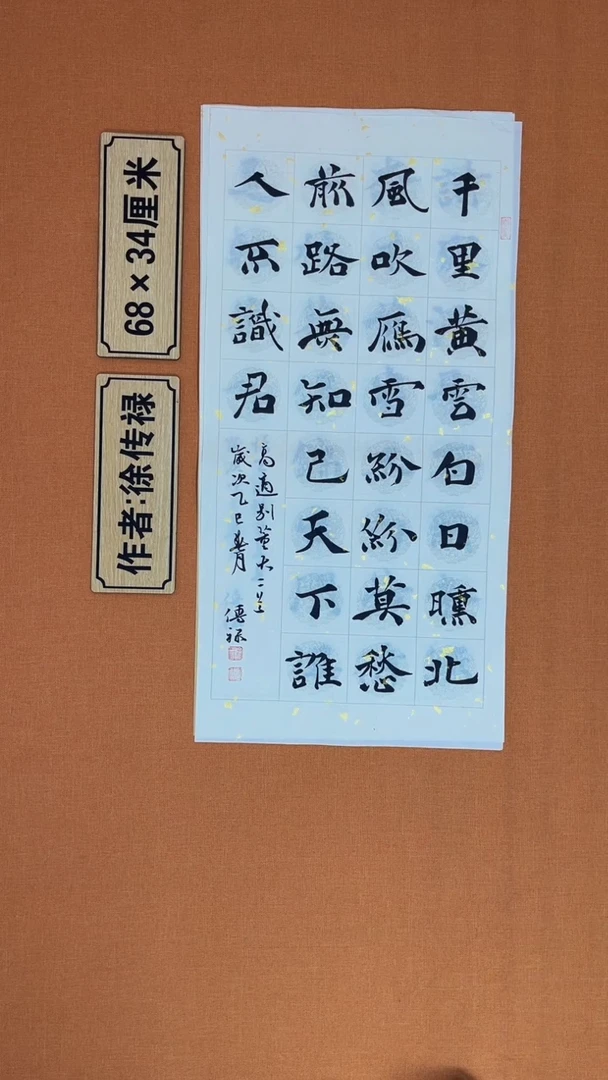 千里黄雲白日曛北
風吹鴈雪紛紛莫愁
前路無知己天下誰
人不識君
高適别董大二首
歲次乙巳春月 傳禄
68×34厘米
作者:徐传禄